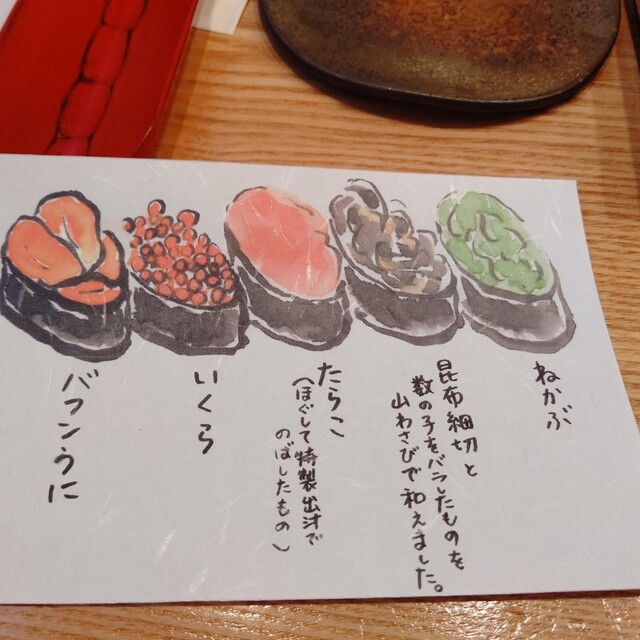 ねかぶ
昆布細切と
数の子をバラしたものを
山わさびで和えました。
たらこ
(ほぐして特製出汁で
のばしたもの)
いくら
バフンうに